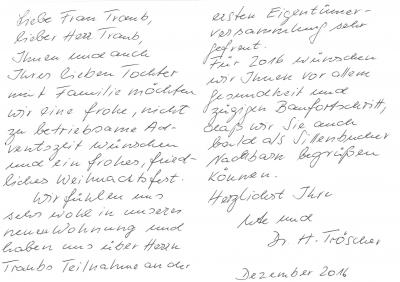 Liebe Frau Traub,
lieber Herr Traub,
Ihnen und auch
Ihrer lieben Tochter
mit Familie möchten
wir eine frohe, nicht
zu betriebsame Ad-
ventszeit wünschen
und ein frohes, fried-
liches Weihnachtsfest.
Wir fühlen uns
sehr wohl in unserer
neuen Wohnung und
haben uns über Herrn
Traubs Teilnahme an der
ersten Eigentümer-
versammlung sehr
gefreut.
Für 2016 wünschen
wir Ihnen vor allem
Gesundheit und
zügigen Baufortschritt,
daß wir Sie auch
bald als Sillenbucher
Nachbarn begrüßen
können.
Herzlichst Ihre
und
Dr. H. Tröscher
Dezember 2016